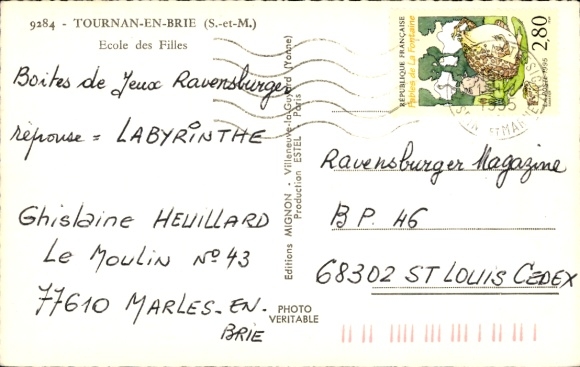 9284 - TOURNAN-EN-BRIE (S.-et-M.)
Ecole des Filles
Boîtes de Jeux Ravensburger
réponse = LABYRINTHE
Ghislaine HEUILLARD
Le Moulin N° 43
77610 MARLES-EN-
BRIE
Editions MIGNON - Villeneuve-la-Guyard (Yonne)
Production ESTEL - Paris
PHOTO
VERITABLE
RÉPUBLIQUE FRANÇAISE
Fables de La Fontaine
2,80
1995
Ravensburger Magazine
BP. 46
68302 ST LOUIS CEDEX